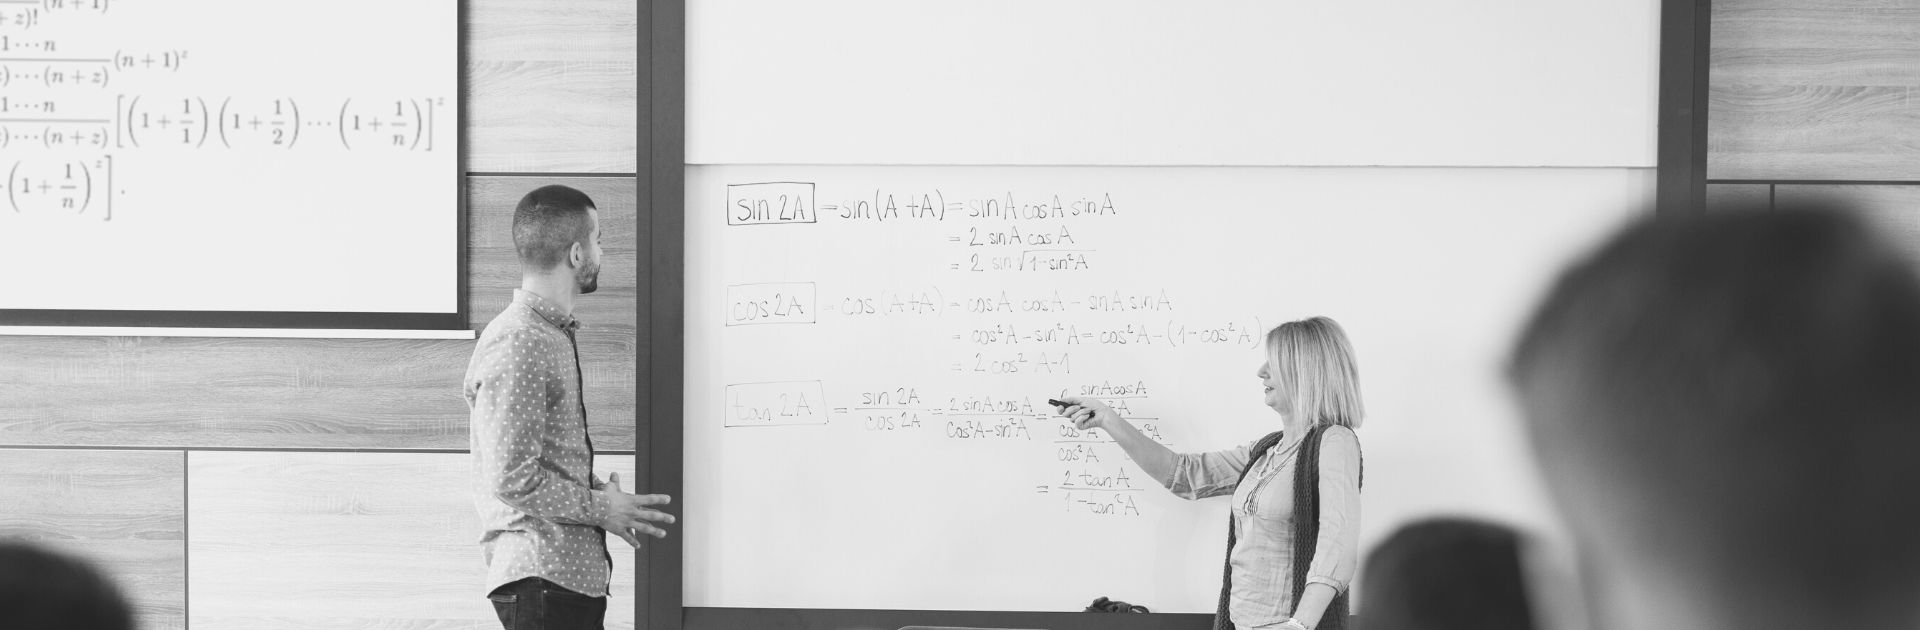 + z)! (n + 1)
1 ··· n
) ··· (n + z) (n + 1)^z
1 ··· n
) ··· (n + z) [(1 + 1/1) (1 + 1/2) ··· (1 + 1/n)]^z
(1 + 1/n)^z].
sin 2A = sin (A + A) = sin A cos A sin A
= 2 sin A cos A
= 2 sin √1-sin²A
cos 2A = cos (A+A) = cos A cos A - sin A sin A
= cos²A - sin²A = cos²A - (1 - cos²A)
= 2 cos² A-1
tan 2A = sin 2A / cos 2A = 2 sin A cos A / cos²A - sin²A = sin A cos A / ²A
cos²A / cos²A ²A
= 2 tan A / 1 - tan²A